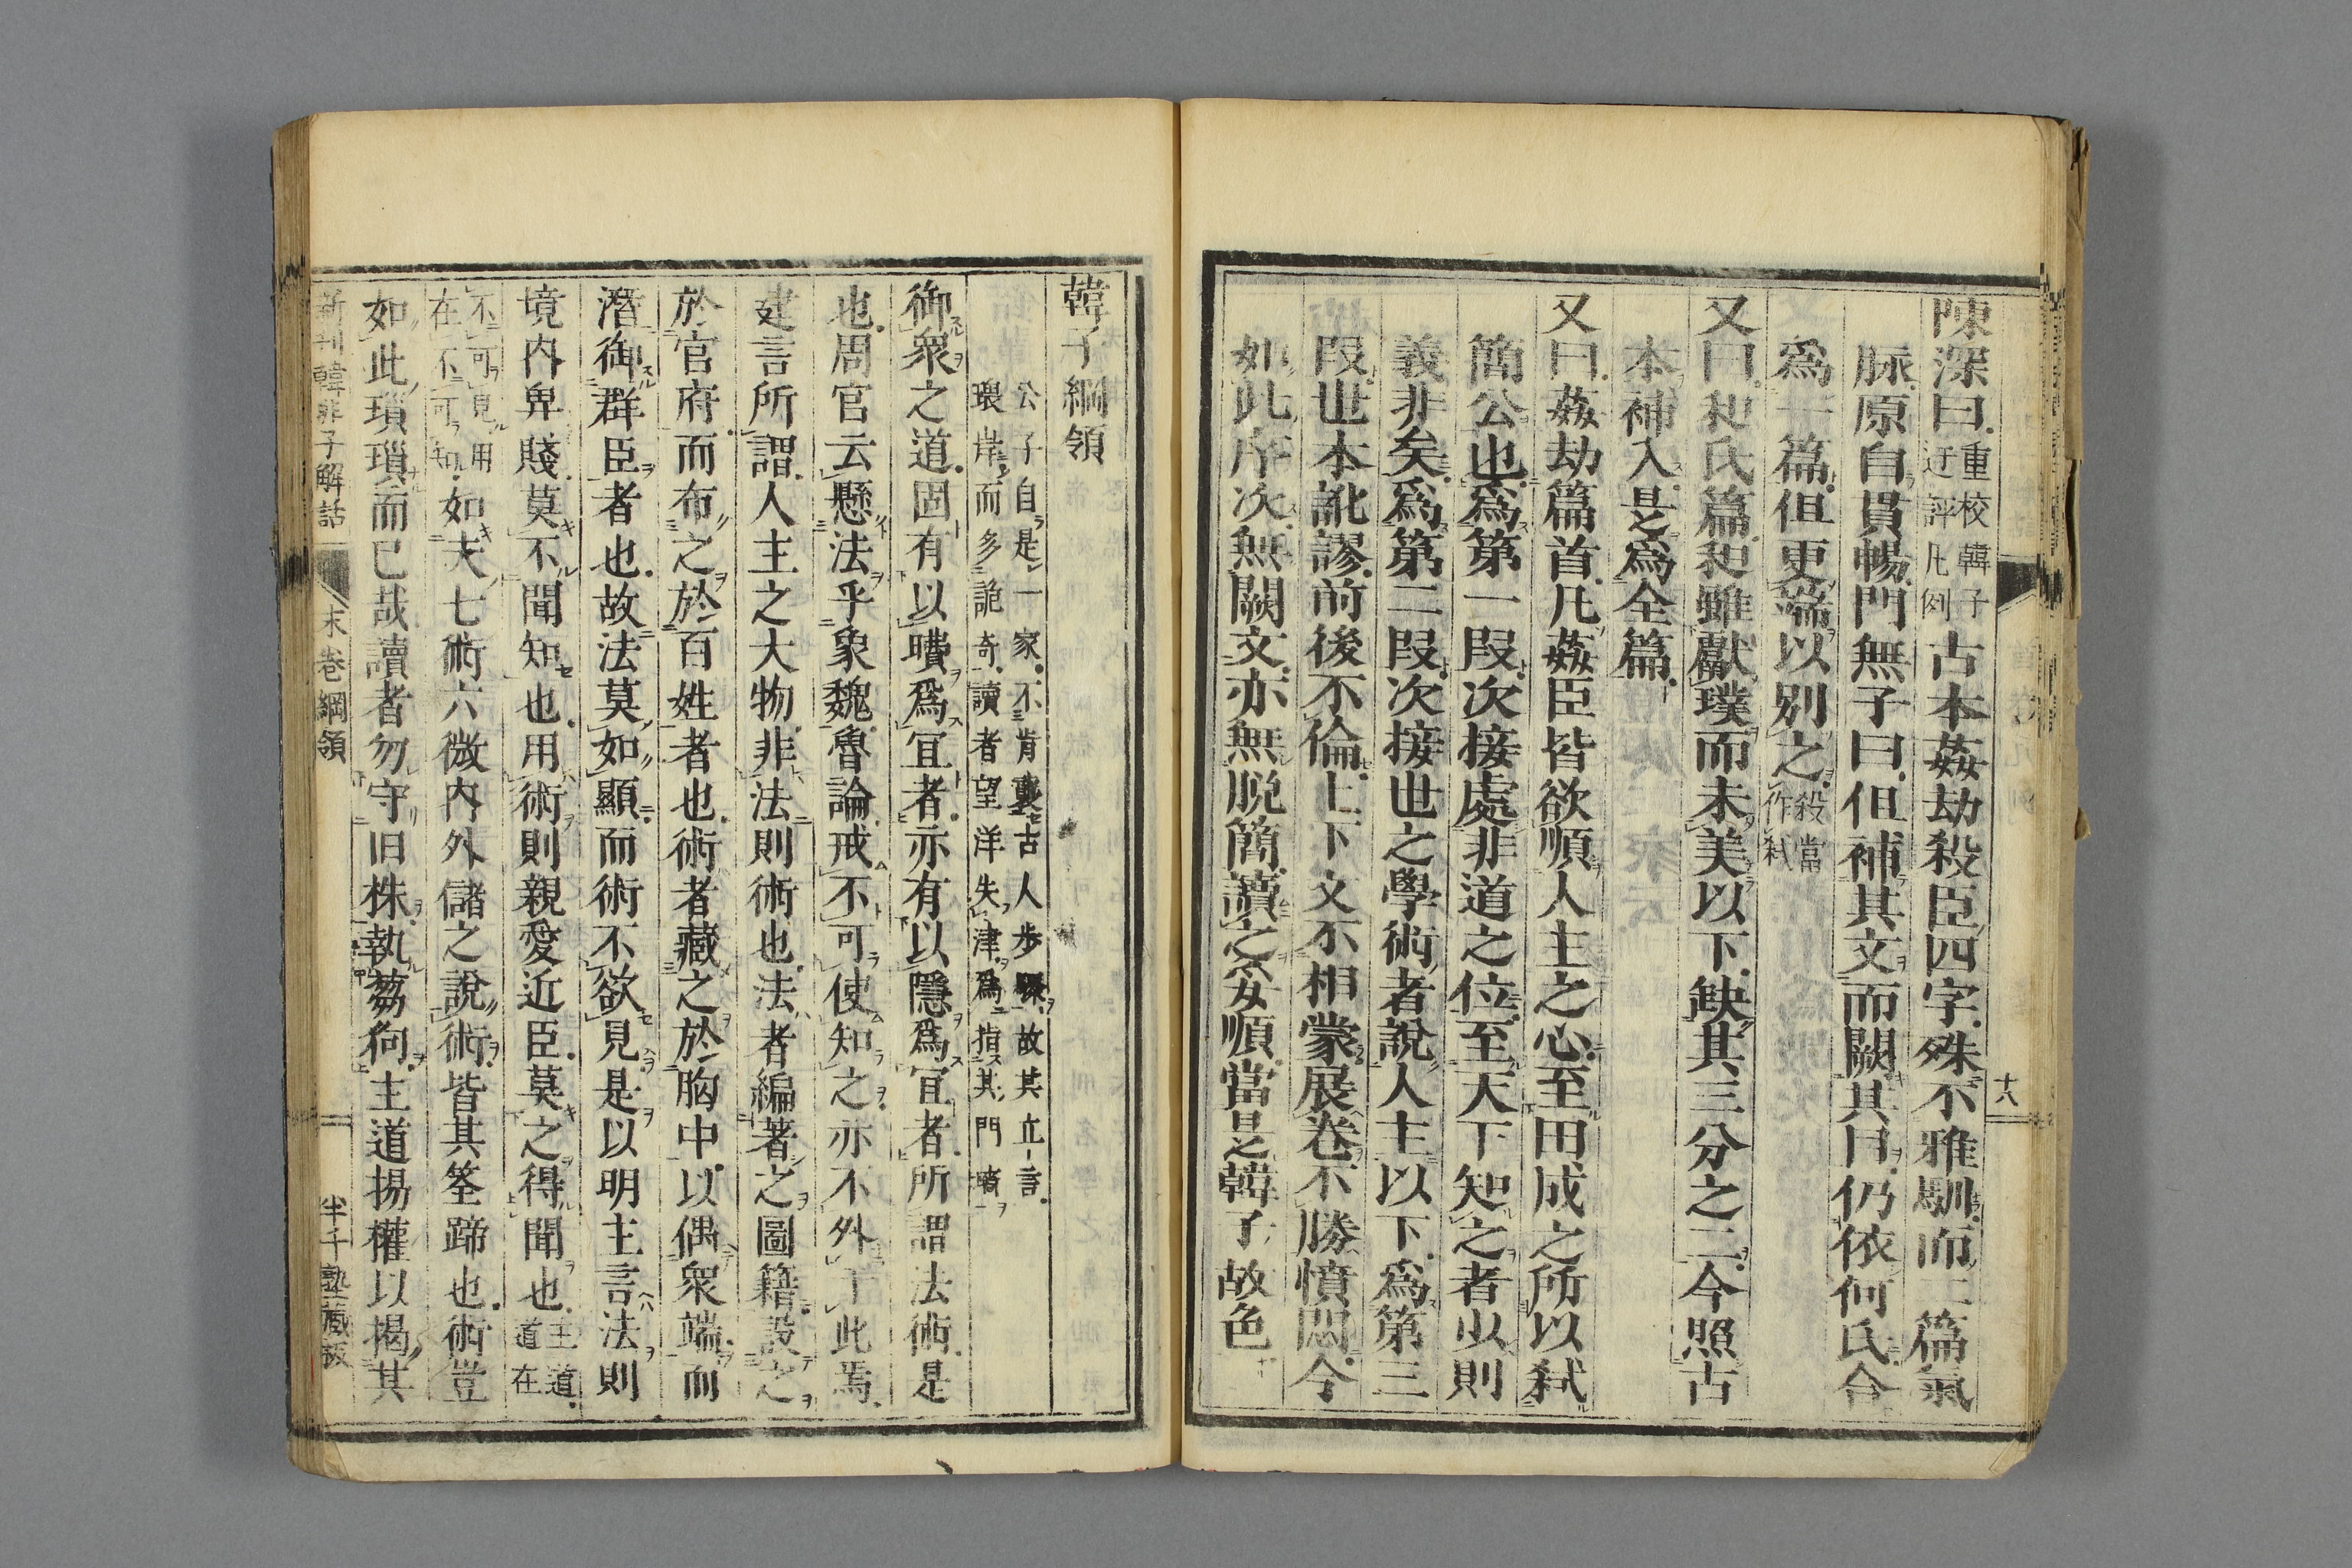 陳深曰重校韓子迂評凡例古本姦劫殺臣四字殊不雅馴而二篇氣
脉原自貫暢門無子曰但補其文而闕其目仍依何氏合
爲一篇但更端以別之殺當作弒
又曰和氏篇和雖獻璞而未美以下缺其三分之二今照古
本補入是爲全篇
又曰姦劫篇首凡姦臣皆欲順人主之心至田成之所以弒
簡公也爲第一段次接處非道之位至天下知之者少則
義非矣爲第二段次接世之學術者說人主以下爲第三
段世本訛謬前後不倫上下文不相蒙展卷不勝憤悶今
如此序次無闕文亦無脱簡讀之妥順當是韓子故色
十八
韓子綱領
公子自是一家不肯襲古人步驟故其立言
環岸而多詭奇讀者望洋失津爲指其門
御衆之道固有以曊爲冝者亦有以隱爲冝者所謂法術是
也周官云懸法乎象魏魯論戒不可使知之亦不外于此焉
建言所謂人主之大物非法則術也法者編著之圖籍設之
於官府而布之於百姓者也術者藏之於胸中以偶衆端而
潛御群臣者也故法莫如顯而術不欲見是以明主言法則
境内卑賤莫不聞知也用術則親愛近臣莫之得聞也主道道在
不可見用在不可知如夫七術六微内外儲之說術皆其筌蹄也術豈
如此瑣瑣而已哉讀者勿守旧株執芻狗主道揚權以揭其
新刊韓非子解詁 末卷綱領 半千塾藏版